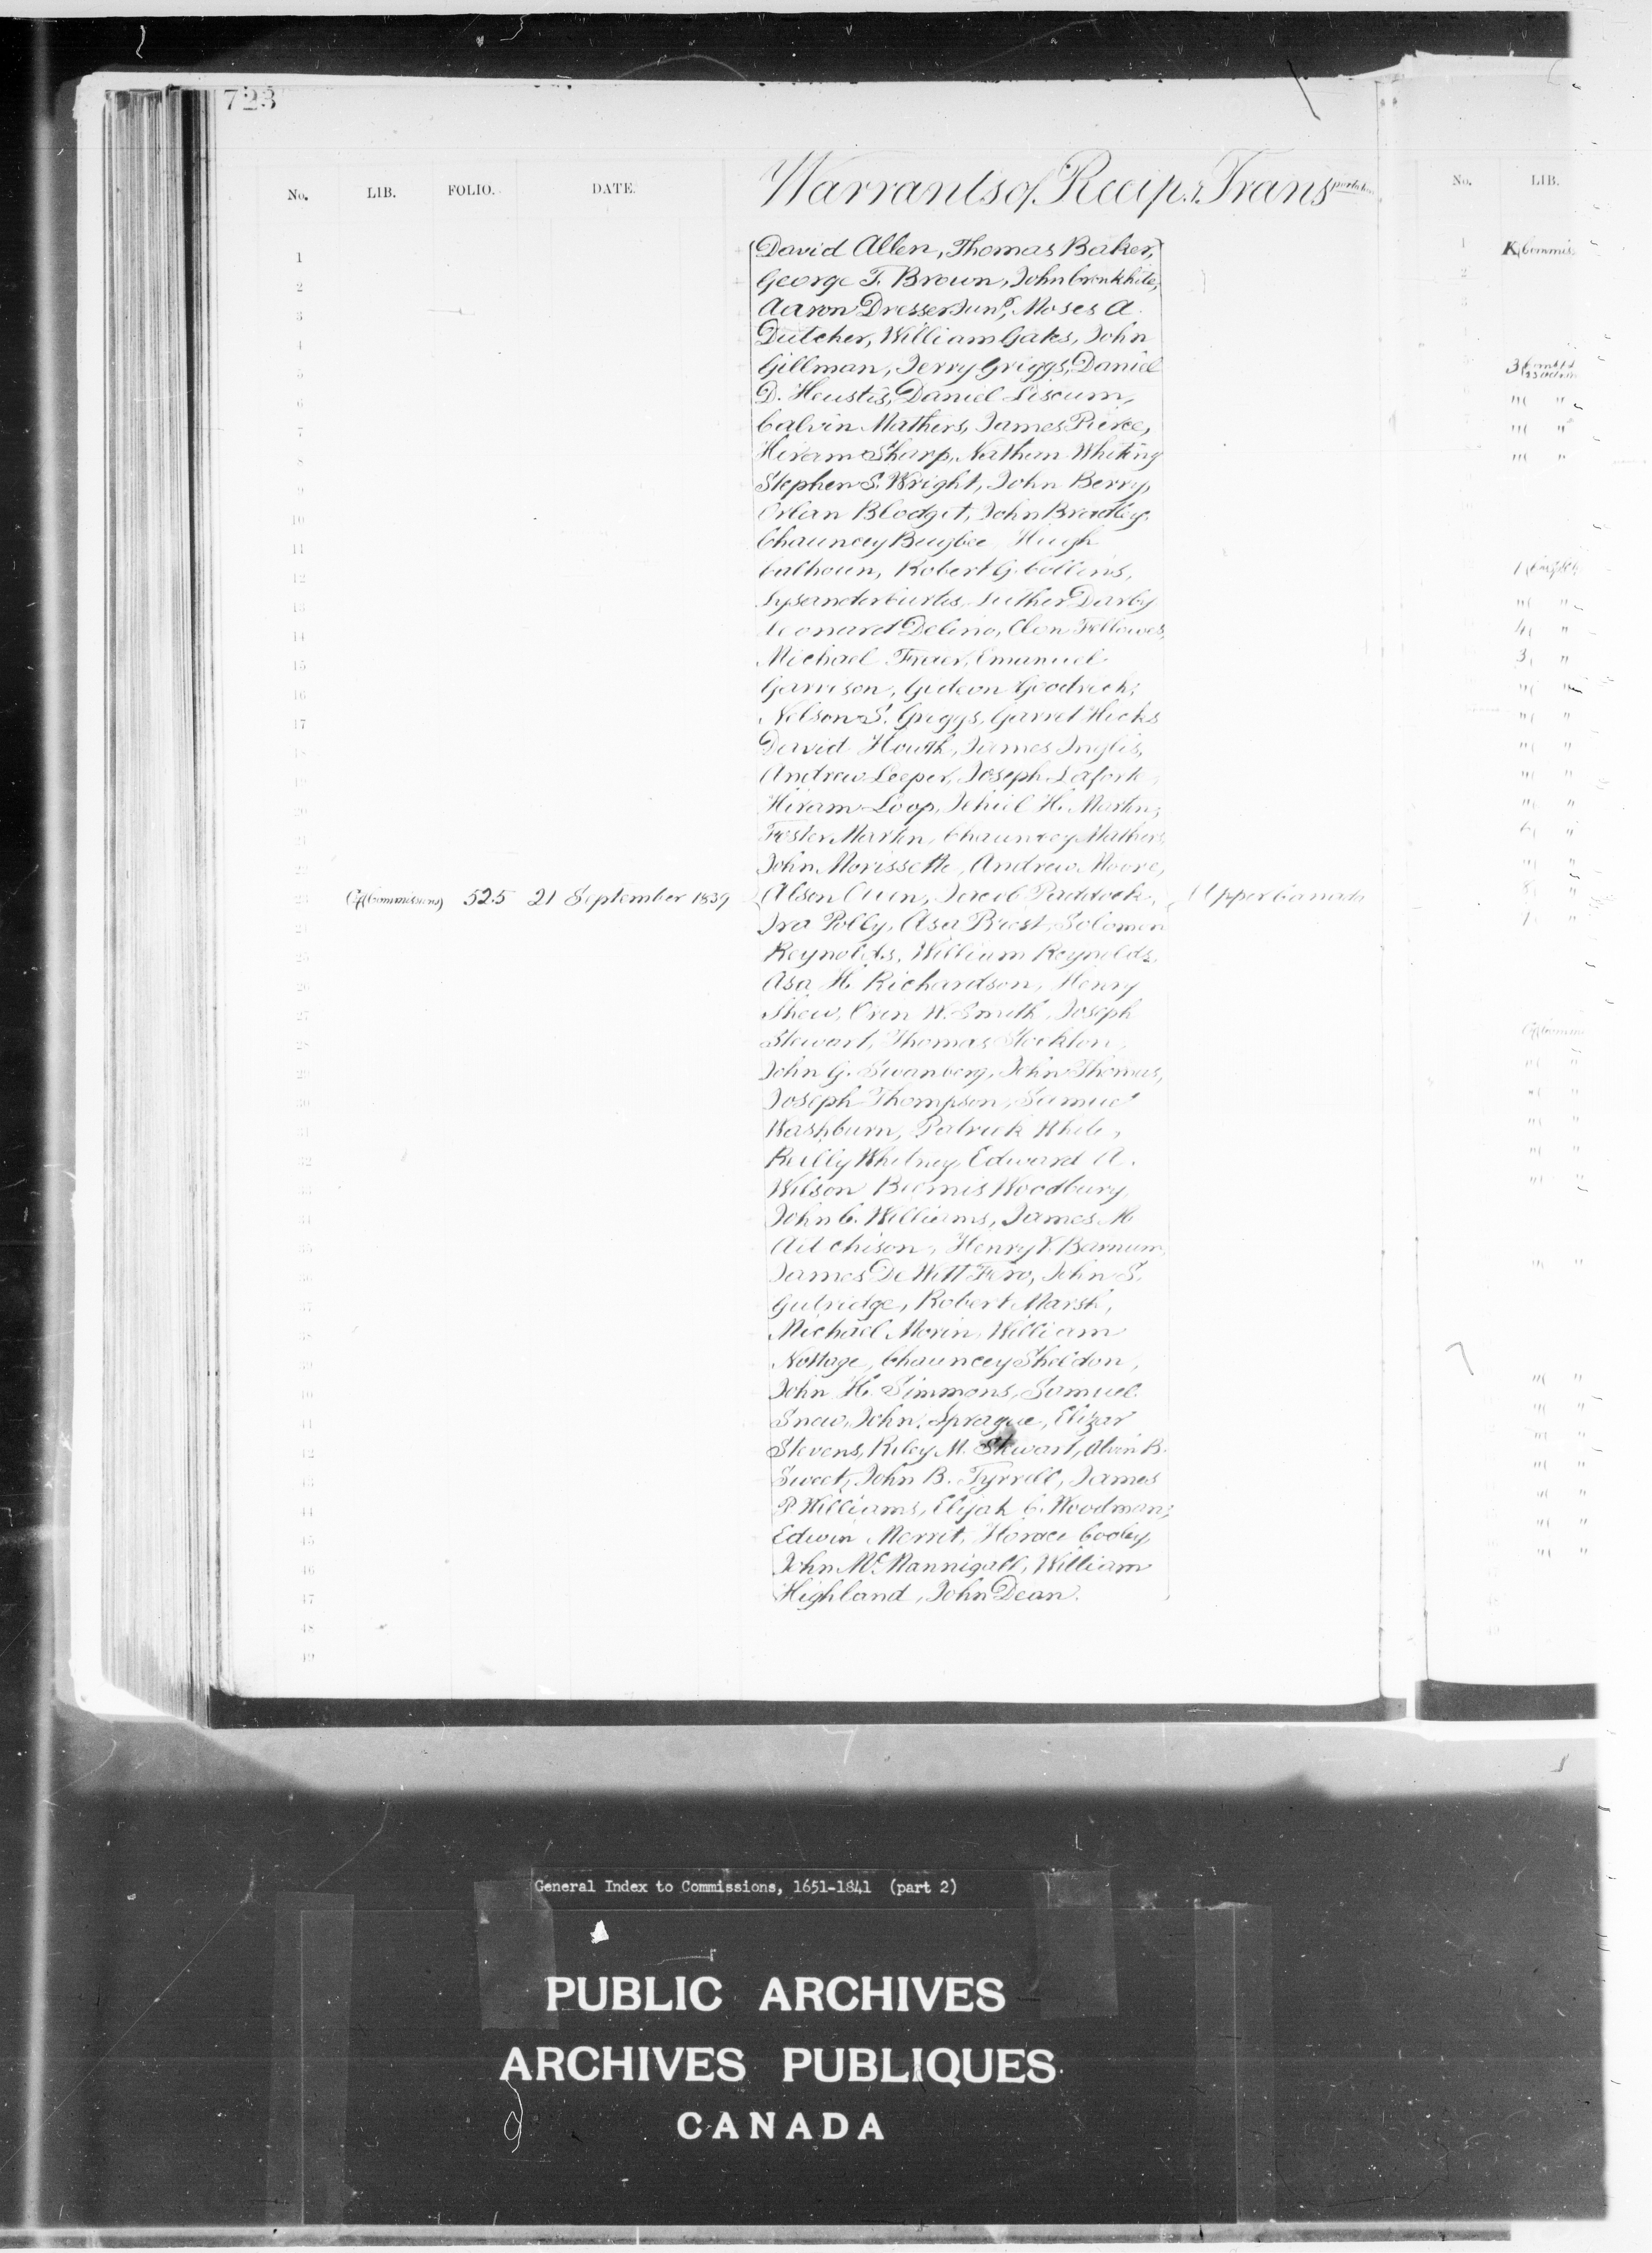 723
No. LIB. FOLIO. DATE. Warrants of Receip. & Trans portation
1 David Allen, Thomas Baker,
2 George T. Brown, John Cronkhite,
3 Aaron Dresser Junr, Moses A.
4 Dutcher, William Gates, John
5 Gillman, Jerry Griggs, Daniel
6 D. Heustis, Daniel Liscum,
7 Calvin Mathers, James Pierce,
8 Hiram Sharp, Nathan Whiting
9 Stephen S. Wright, John Berry,
10 Orlan Blodget, John Bradley,
11 Chauncey Bugbee Hugh
12 Calhoun, Robert G. Collins,
13 Lysander Curtis, Luther Darby
14 Leonard Delino, Elon Fellowes,
15 Michael Fraer, Emanuel
16 Garrison, Gideon Goodrich,
17 Nelson S. Griggs, Garret Hicks
18 David Houth, James Inglis,
19 Andrew Leeper, Joseph Lafort,
20 Hiram Loop, Jehiel H. Martin,
21 Foster Martin, Chauncey Mathers,
22 John Morissette, Andrew Moore,
23 G (Commissions) 525 21 September 1839 Alson Owen, Jacob Paddock, Upper Canada
24 Ira Polly, Asa Priest, Solomon
25 Reynolds, William Reynolds,
26 Asa H. Richardson, Henry
27 Shew, Orin W. Smith, Joseph
28 Stewart, Thomas Stockton,
29 John G. Swanberg, John Thomas,
30 Joseph Thompson, Samuel
31 Washburn, Patrick White,
32 Reilly Whitney, Edward A.
33 Wilson Beemis Woodbury,
34 John C. Williams, James M
35 Ait chison, Henry V. Barnum,
36 James De Witt Fero, John S.
37 Gutridge, Robert Marsh,
38 Michael Morin, William
39 Nottage, Chauncey Sheldon,
40 John H. Simmons, Samuel
41 Snow, John Sprague, Elizar
42 Stevens, Riley M. Stewart, Alvin B.
43 Sweet, John B. Tyrrell, James
44 P. Williams, Elijah C. Woodman,
45 Edwin Merrit, Horace Cooley,
46 John Mc Mannigall, William
47 Highland, John Dean.
48
49
No. LIB.
1 K (Commis
General Index to Commissions, 1651-1841 (part 2)
PUBLIC ARCHIVES
ARCHIVES PUBLIQUES
CANADA